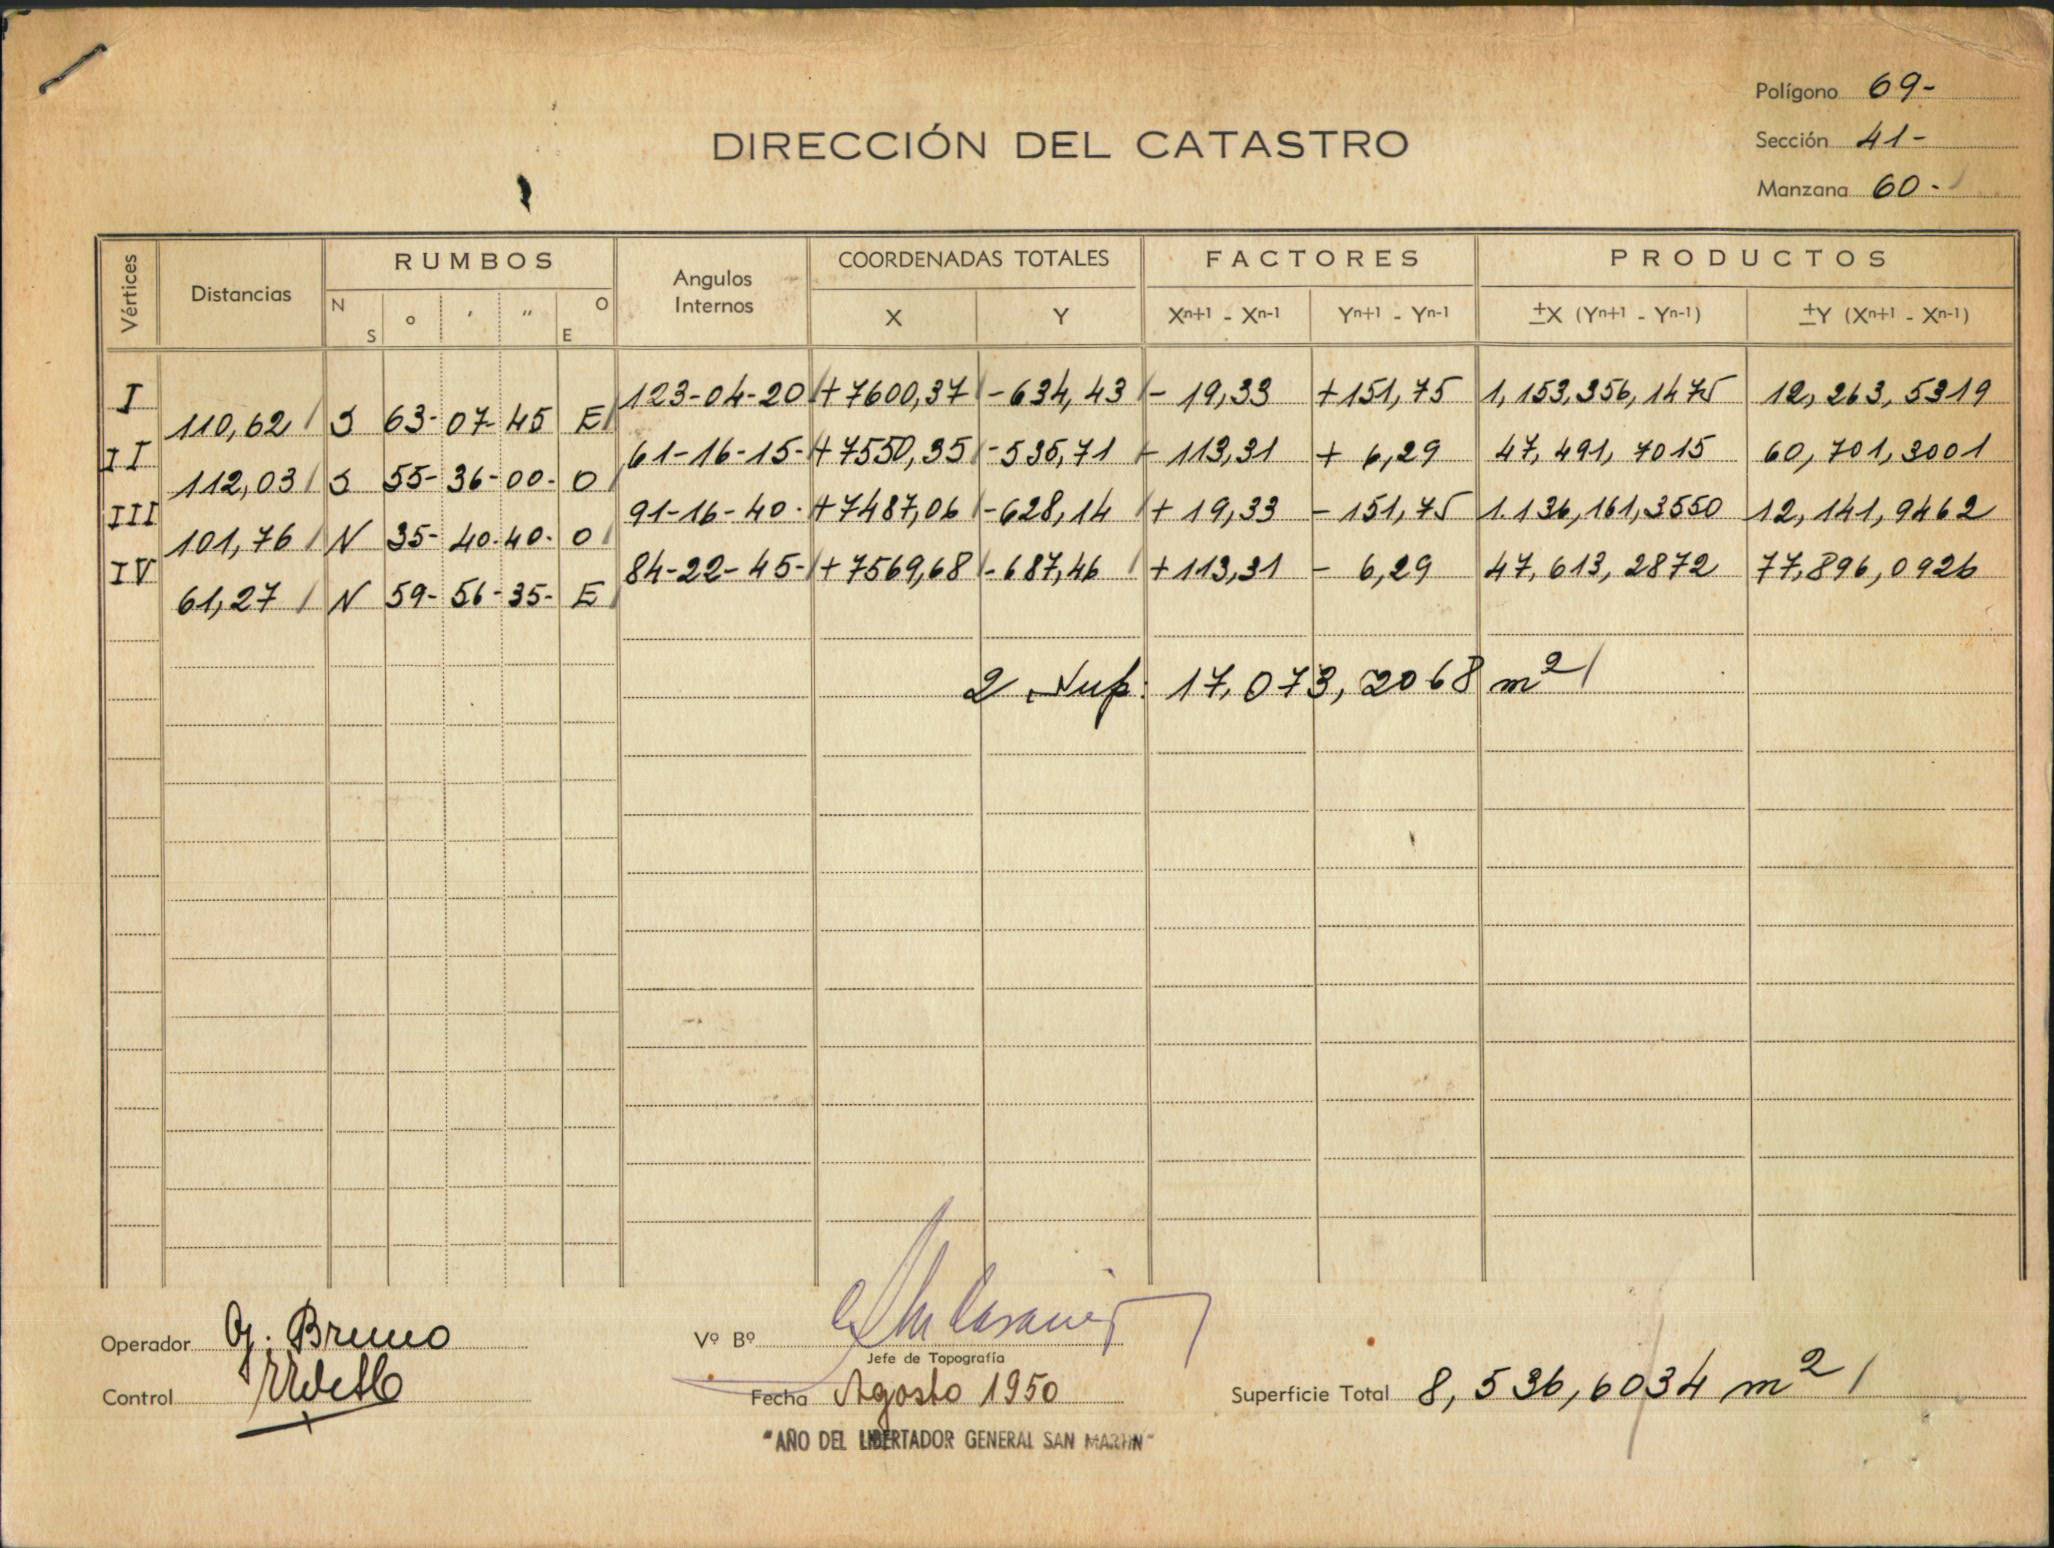 Polígono 69-
DIRECCIÓN DEL CATASTRO
Sección 41-
Manzana 60.-
Vértices Distancias RUMBOS Angulos Internos COORDENADAS TOTALES FACTORES PRODUCTOS
N S ° ′ ″ O E X Y Xn+1 - Xn-1 Yn+1 - Yn-1 ±X (Yn+1 - Yn-1) ±Y (Xn+1 - Xn-1)
I 123-04-20 +7600,37 -634,43 - 19,33 +151,75 1,153,356,1475 12,263,5319
110,62 S 63- 07- 45 E
II 61-16-15- +7550,35 -535,71 - 113,31 + 6,29 47,491,7015 60,701,3001
112,03 S 55- 36- 00- O
III 91-16-40- +7487,06 -628,14 + 19,33 - 151,75 1.136,161,3550 12,141,9462
101,76 N 35- 40- 40- O
IV 84-22-45- +7569,68 -687,46 +113,31 - 6,29 47,613,2872 77,896,0926
61,27 N 59- 56- 35- E
2 Sup: 17,073,2068 m²
Operador Bruno
Vº Bº
Jefe de Topografía
Control
Fecha Agosto 1950
Superficie Total 8,536,6034 m²
"AÑO DEL LIBERTADOR GENERAL SAN MARTIN"